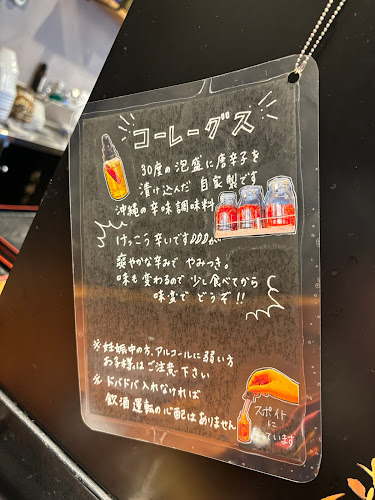 コーレーグス
30度の泡盛に唐辛子を
漬け込んだ 自家製です
沖縄の辛味調味料
けっこう辛いです
爽やかな辛みで やみつき。
味も変わるので 少し食べてから
味変で どうぞ!!
※妊娠中の方、アルコールに弱い方
お子様はご注意下さい
※ドバドバ入れなければ
飲酒運転の心配はありません
スポイト
に
います